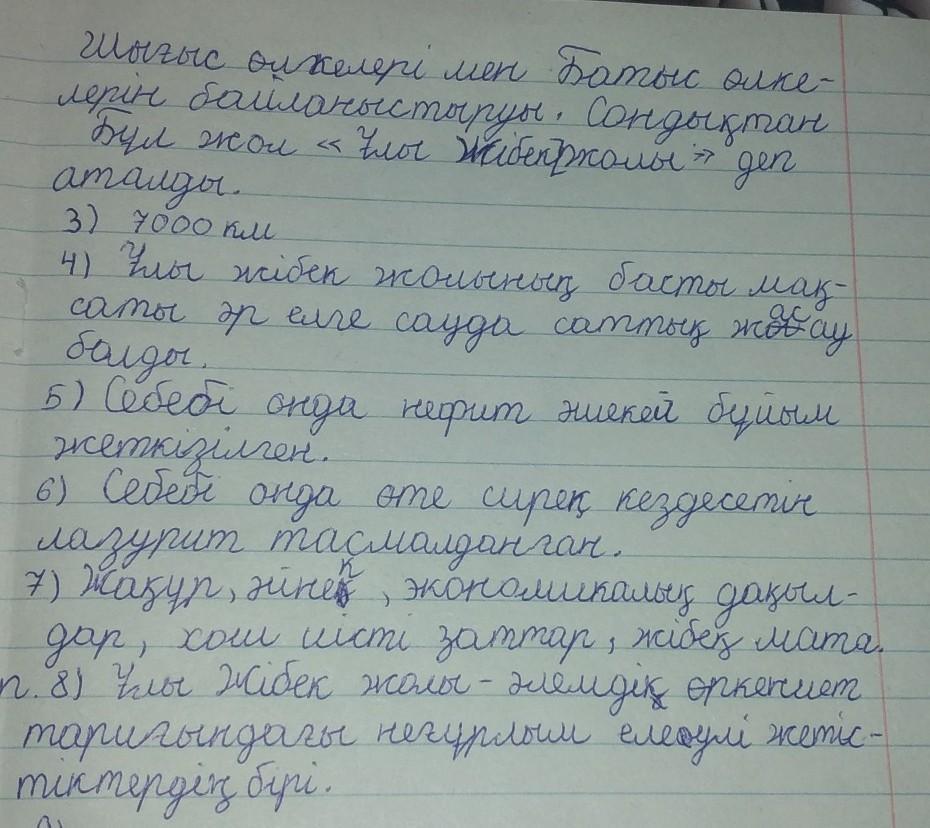 Шығыс өлкелері мен Батыс өлке-
лерін байланыстыруы. Сондықтан
Бұл жол «Ұлы Жібек жолы» деп
аталды.
3) 7000 км
4) Ұлы жібек жолының басты мақ-
саты әр елге сауда саттық жасау
болды.
5) Себебі онда нефрит әшекей бұйым
жеткізілген.
6) Себебі онда өте сирең кездесетін
лазурит тасмалданған.
7) Жақұр, әйнек, экономикалық дақыл-
дар, хош иісті заттар, жібең мата.
п. 8) Ұлы Жібек жолы - әлемдік өркениет
тарихындағы неғұрлым елеулі жетіс-
тіктердің бірі.